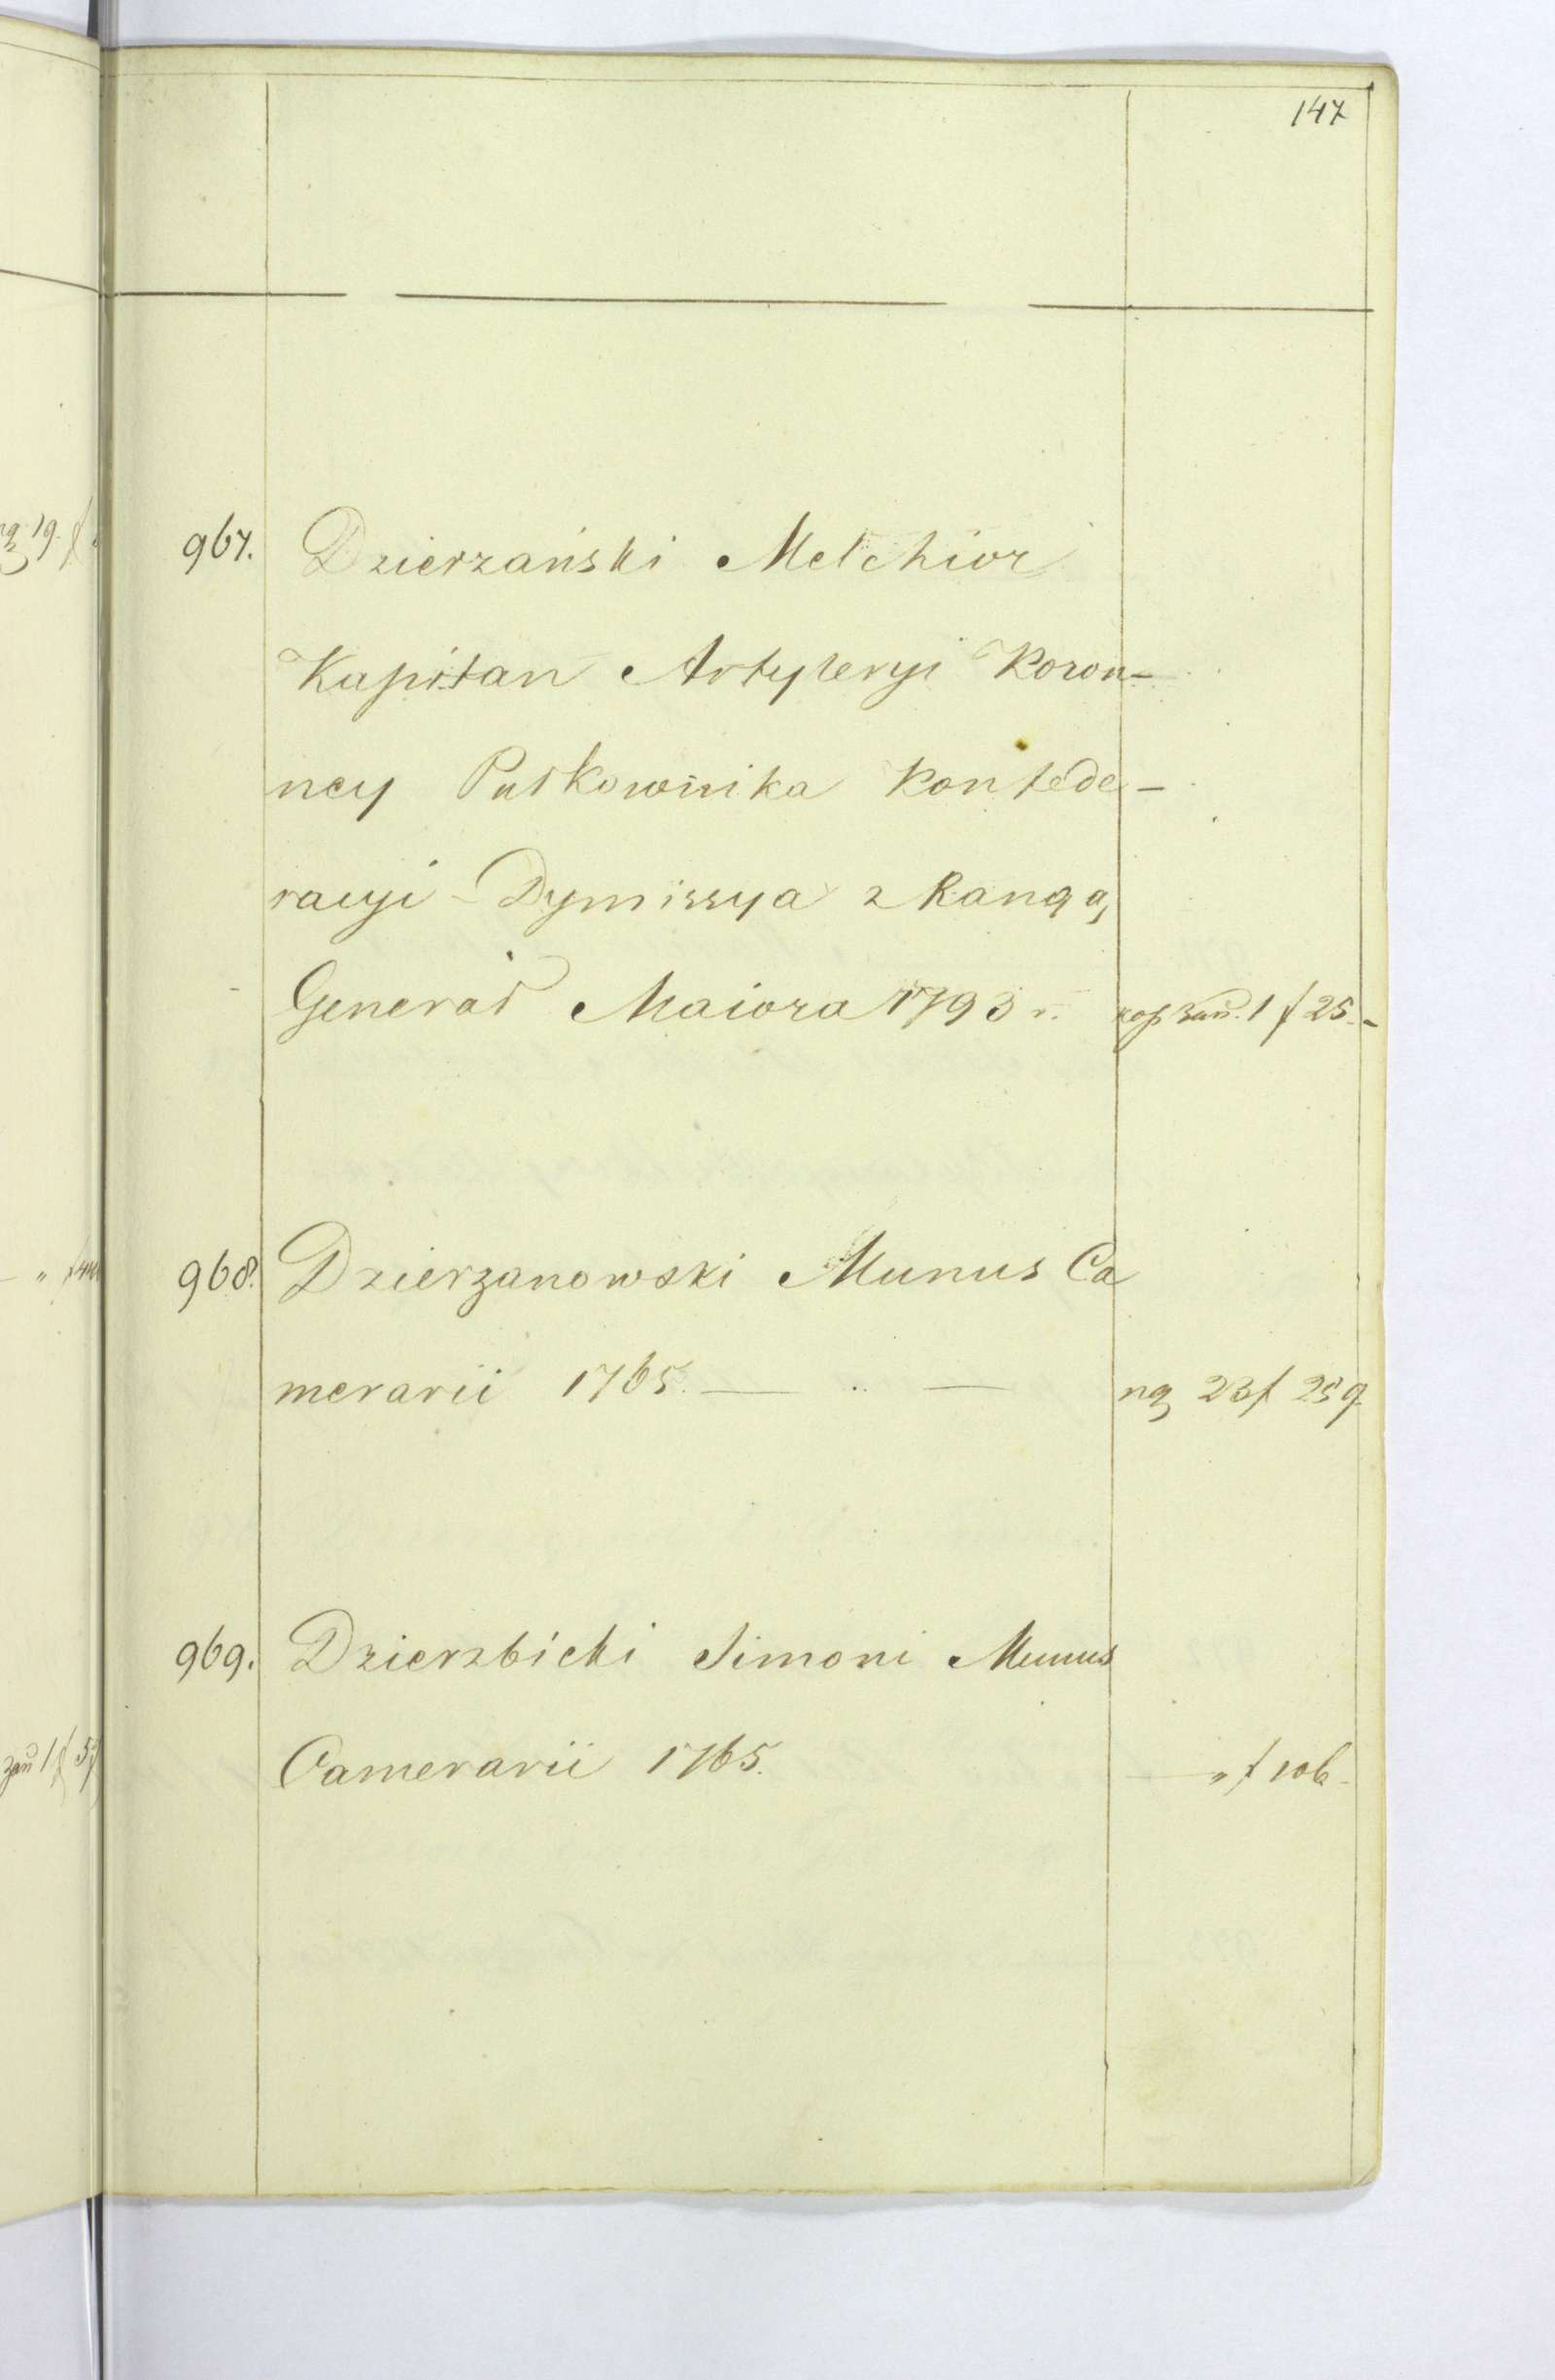 147
967. Dzierzański Melchior
Kapitan Artyleryi Koron-
ney Pułkownika Konfede-
racyi - Dymissya z Rangą
Generał Maiora 1793 r. xsg zań. 1 f 25.-
968. Dzierzanowski Munus Ca
merarii 1765. — .. — 23 f 259
969. Dzierzbicki Simoni Munus
Camerarii 1765. — „ f 106-